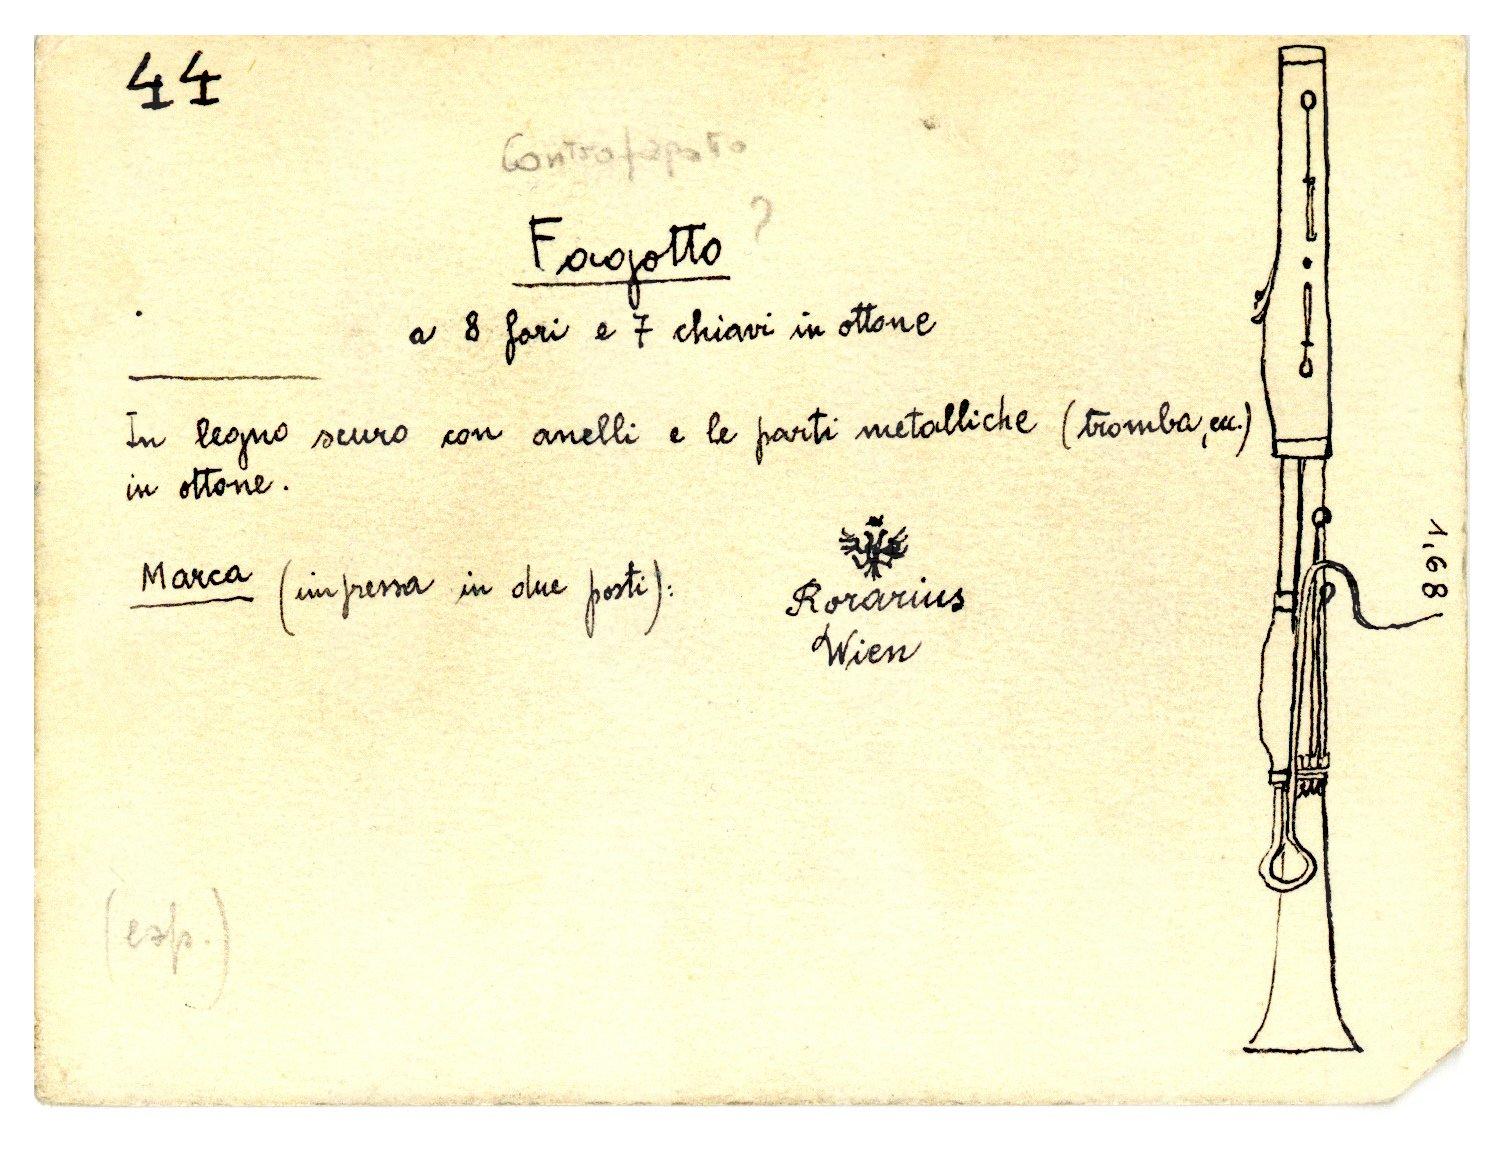 44
Contrafagotto
?
Fagotto
a 8 fori e 7 chiavi in ottone
In legno scuro con anelli e le parti metalliche (tromba, ecc.)
in ottone.
Marca (impressa in due posti):
Rorarius
Wien
1,68
(esp.)